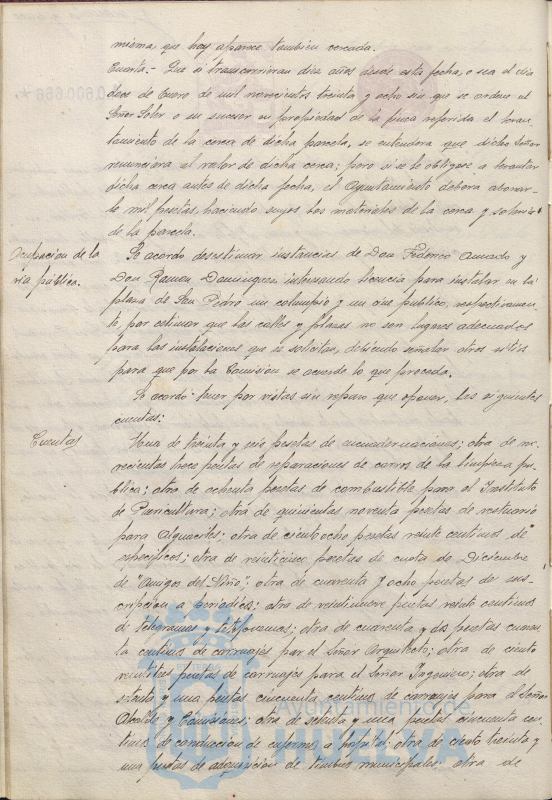 misma, que hoy aparece tambien cercada.
Cuarta.- Que si transcurrieran diez años desde esta fecha, o sea el dia
doce de Enero de mil novecientos treinta y ocho sin que se ordene al
Señor Soler o su sucesor en propiedad de la finca referida el levan
tamiento de la cerca de dicha parcela, se entendera que dicho Señor
renunciara al valor de dicha cerca; pero si se le obligase a levantar
dicha cerca antes de dicha fecha, el Ayuntamiento debera abonar-
le mil pesetas, haciendo suyos los materiales de la cerca y
de la parcela.
Ocupacion de la
via publica.
Se acordo desestimar instancias de Don Federico Amado y
Don Ramon Dominguez interesando licencia para instalar en la
plaza de San Pedro un columpio y un cine publico, respectivamen-
te, por estimar que las calles y plazas no son lugares adecuados
para las instalaciones que se solicitan, debiendo señalar otros sitios
para que por la Comision se acuerde lo que proceda.
Se acordó tener por vistas sin reparo que oponer, las siguientes
cuentas:
Cuentas
Una de treinta y seis pesetas de encuadernaciones; otra de no-
vecientas trece pesetas de reparaciones de carros de la limpieza pu-
blica; otra de ochenta pesetas de combustible para el Instituto
de Puericultura; otra de quinientas noventa pesetas de vestuario
para Alguaciles; otra de ciento ocho pesetas veinte centimos de
especificos; otra de veinticinco pesetas de cuota de Diciembre
de "Amigos del Niño"; otra de cuarenta y ocho pesetas de sus-
cripcion a periodicos; otra de veintinueve pesetas veinte centimos
de telegramas y telefonemas; otra de cuarenta y dos pesetas cuaren-
ta centimos de carruajes por el Señor Arquitecto; otra de ciento
veintitres pesetas de carruajes para el Señor Ingeniero; otra de
setenta y una pesetas cincuenta centimos de carruajes para el Señor
Alcalde y Comisiones; otra de setenta y una pesetas cincuenta cen-
timos de conduccion de enfermos a hospital; otra de ciento treinta y
una pesetas de adquisicion de timbres municipales; otra de
Ayuntamiento de
HUELVA